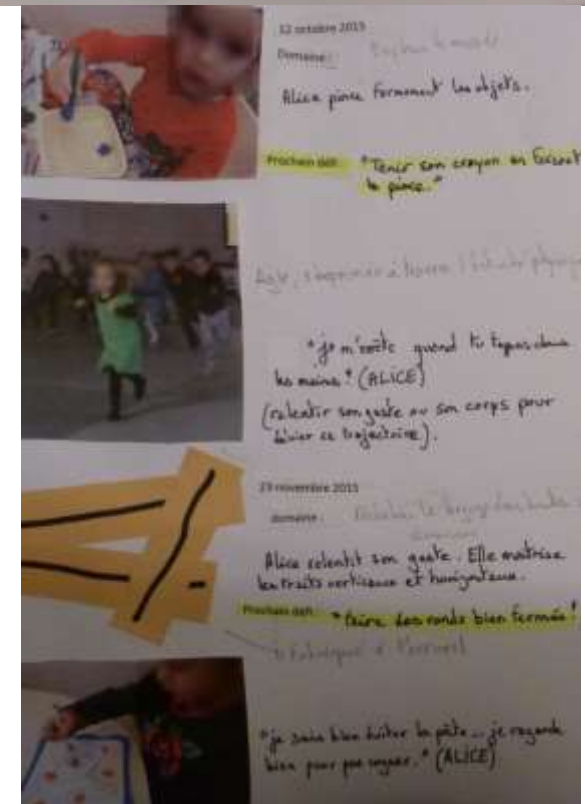 12 octobre 2015
Domaine :
Alice pince fermement les objets.
Prochain défi : "Tenir son crayon en faisant
la pince."
Agir, s'exprimer à travers l'activité physique
"je m'arrête quand tu tapes dans
les mains" (ALICE)
(ralentir son geste ou son corps pour
sa trajectoire).
23 novembre 2015
domaine :
Alice ralentit son geste. Elle maîtrise
les traits verticaux et horizontaux.
Prochain défi : "faire des ronds bien fermés"
"je sais bien éviter la pâte... je regarde
bien pour pas" (ALICE)